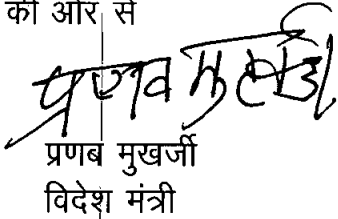 की ओर से
प्रणब मुखर्जी
प्रणब मुखर्जी
विदेश मंत्री